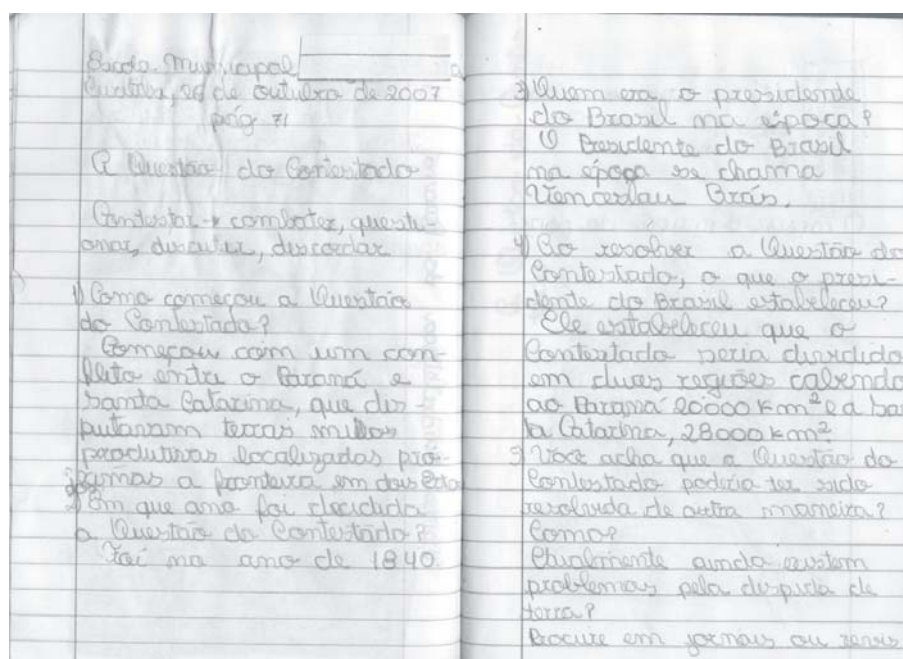 Escola Municipal
Curitiba, 26 de outubro de 2007
pág 71
A Questão do Contestado
Contestar → combater, questi-
onar, discutir, discordar
1) Como começou a Questão
do Contestado?
Começou com um con-
flito entre o Paraná e
Santa Catarina, que dis-
putavam terras muitos
produtivas localizadas pró-
ximas a fronteira em dois Esta
dos
2) Em que ano foi decidida
a Questão do Contestado?
Foi no ano de 1840.
3) Quem era o presidente
do Brasil na época?
O Presidente do Brasil
na época se chama
Venceslau Brás.
4) Ao resolver a Questão do
Contestado, o que o presi-
dente do Brasil estabeleceu?
Ele estabeleceu que o
Contestado seria dividido
em duas regiões cabendo
ao Paraná 20000 km² e a San
ta Catarina, 28000 km²
5) Você acha que a Questão do
Contestado poderia ter sido
resolvida de outra maneira?
Como?
Atualmente ainda existem
problemas pela disputa de
terra?
Procure em jornais ou revis